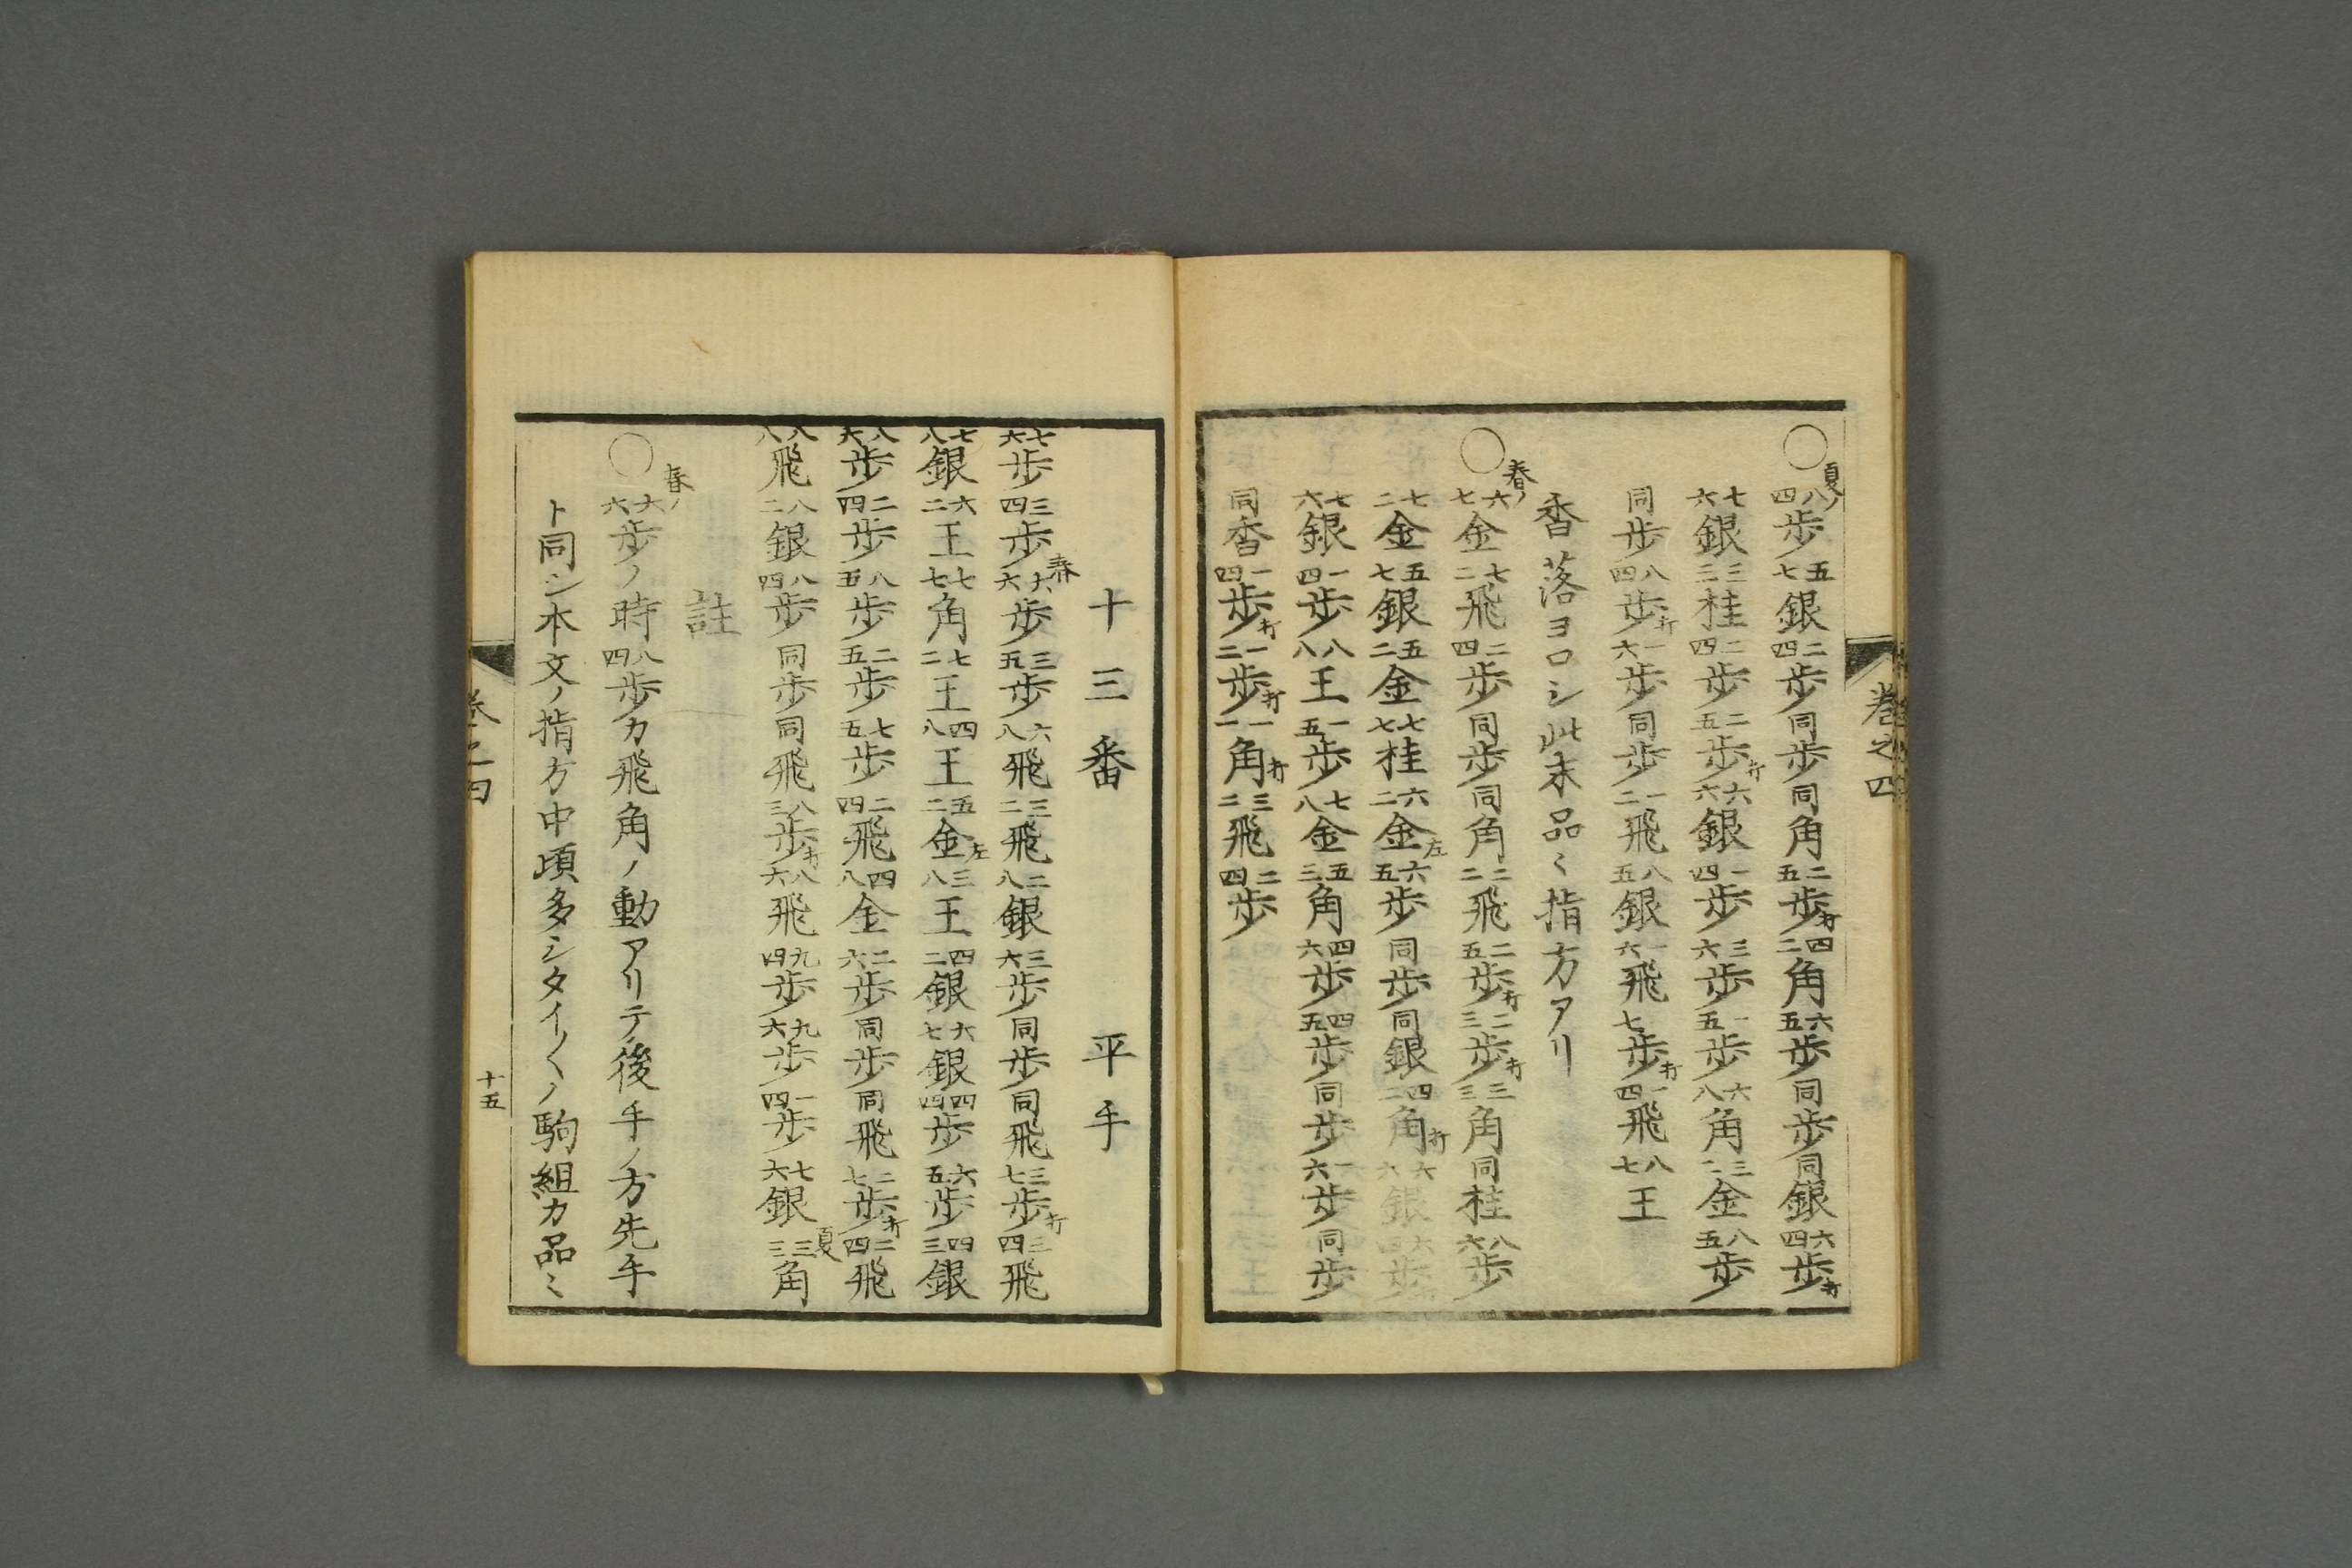 卷之四
○夏ノ八四歩五七銀二四歩同歩同角二五歩打四二角六五歩同歩同銀六四歩打
七六銀三三桂二四歩二五歩打六六銀一四歩三六歩一五歩六八角三二金八五歩
同歩八四歩打一六歩同歩一二飛八五銀一六飛一七歩打一四飛八七王
香落ヨロシ此末品〻指方アリ
○春ノ六七金七二飛二四歩同歩同角二二飛二五歩打二三歩打三三角同桂八六歩
七二金五七銀五二金七七桂六二金左六五歩同歩同銀四二角打六六銀六四歩
七六銀一四歩八八王一五歩七八金五三角四六歩四五歩同歩一六歩同歩
同香一四歩打一二歩打一一角打三二飛二四歩
十三番 平手
七六歩三四歩春六六歩三五歩六八飛三二飛二八銀三六歩同歩同飛三七歩打三四飛
七八銀六二王七七角七二王四八王五二金左三八王四二銀六七銀四四歩六五歩四三銀
八六歩二四歩八五歩二五歩七五歩二四飛四八金二六歩同歩同飛二七歩打二四飛
八八飛八二銀八四歩同歩同飛八三歩打八六飛九四歩九六歩一四歩七六銀夏三三角
註
○春ノ六六歩ノ時八四歩カ飛角ノ動アリテ後手ノ方先手
ト同シ本文ノ指方中頃多シタイ〳〵ノ駒組カ品〻
卷之四
十五